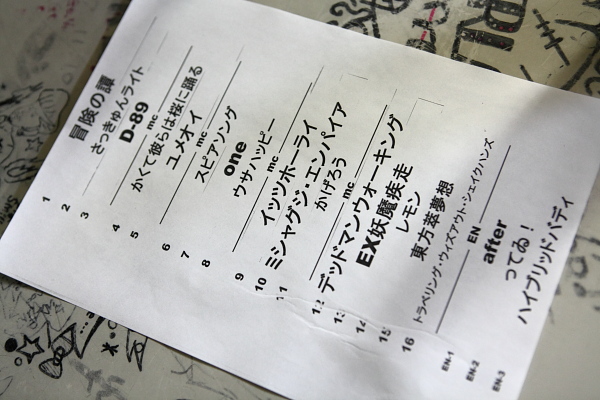 1 冒険の譚
2 さつきゅんライト
3 D-89
mc
4 かくて彼らは桜に踊る
5 ユメオイ
mc
6 スピアソング
7 one
8 ウサハッピー
mc
9 イッツホーライ
10 ミシャゲジ・エンパイア
11 かげろう
mc
12 デッドマンウォーキング
13 EX妖魔疾走
14 レモン
15 東方萃夢想
16 トラベリング・ウィズアウト・シェイクハンズ
EN
EN-1 after
EN-2 ってゐ!
EN-3 ハイブリッドバディ